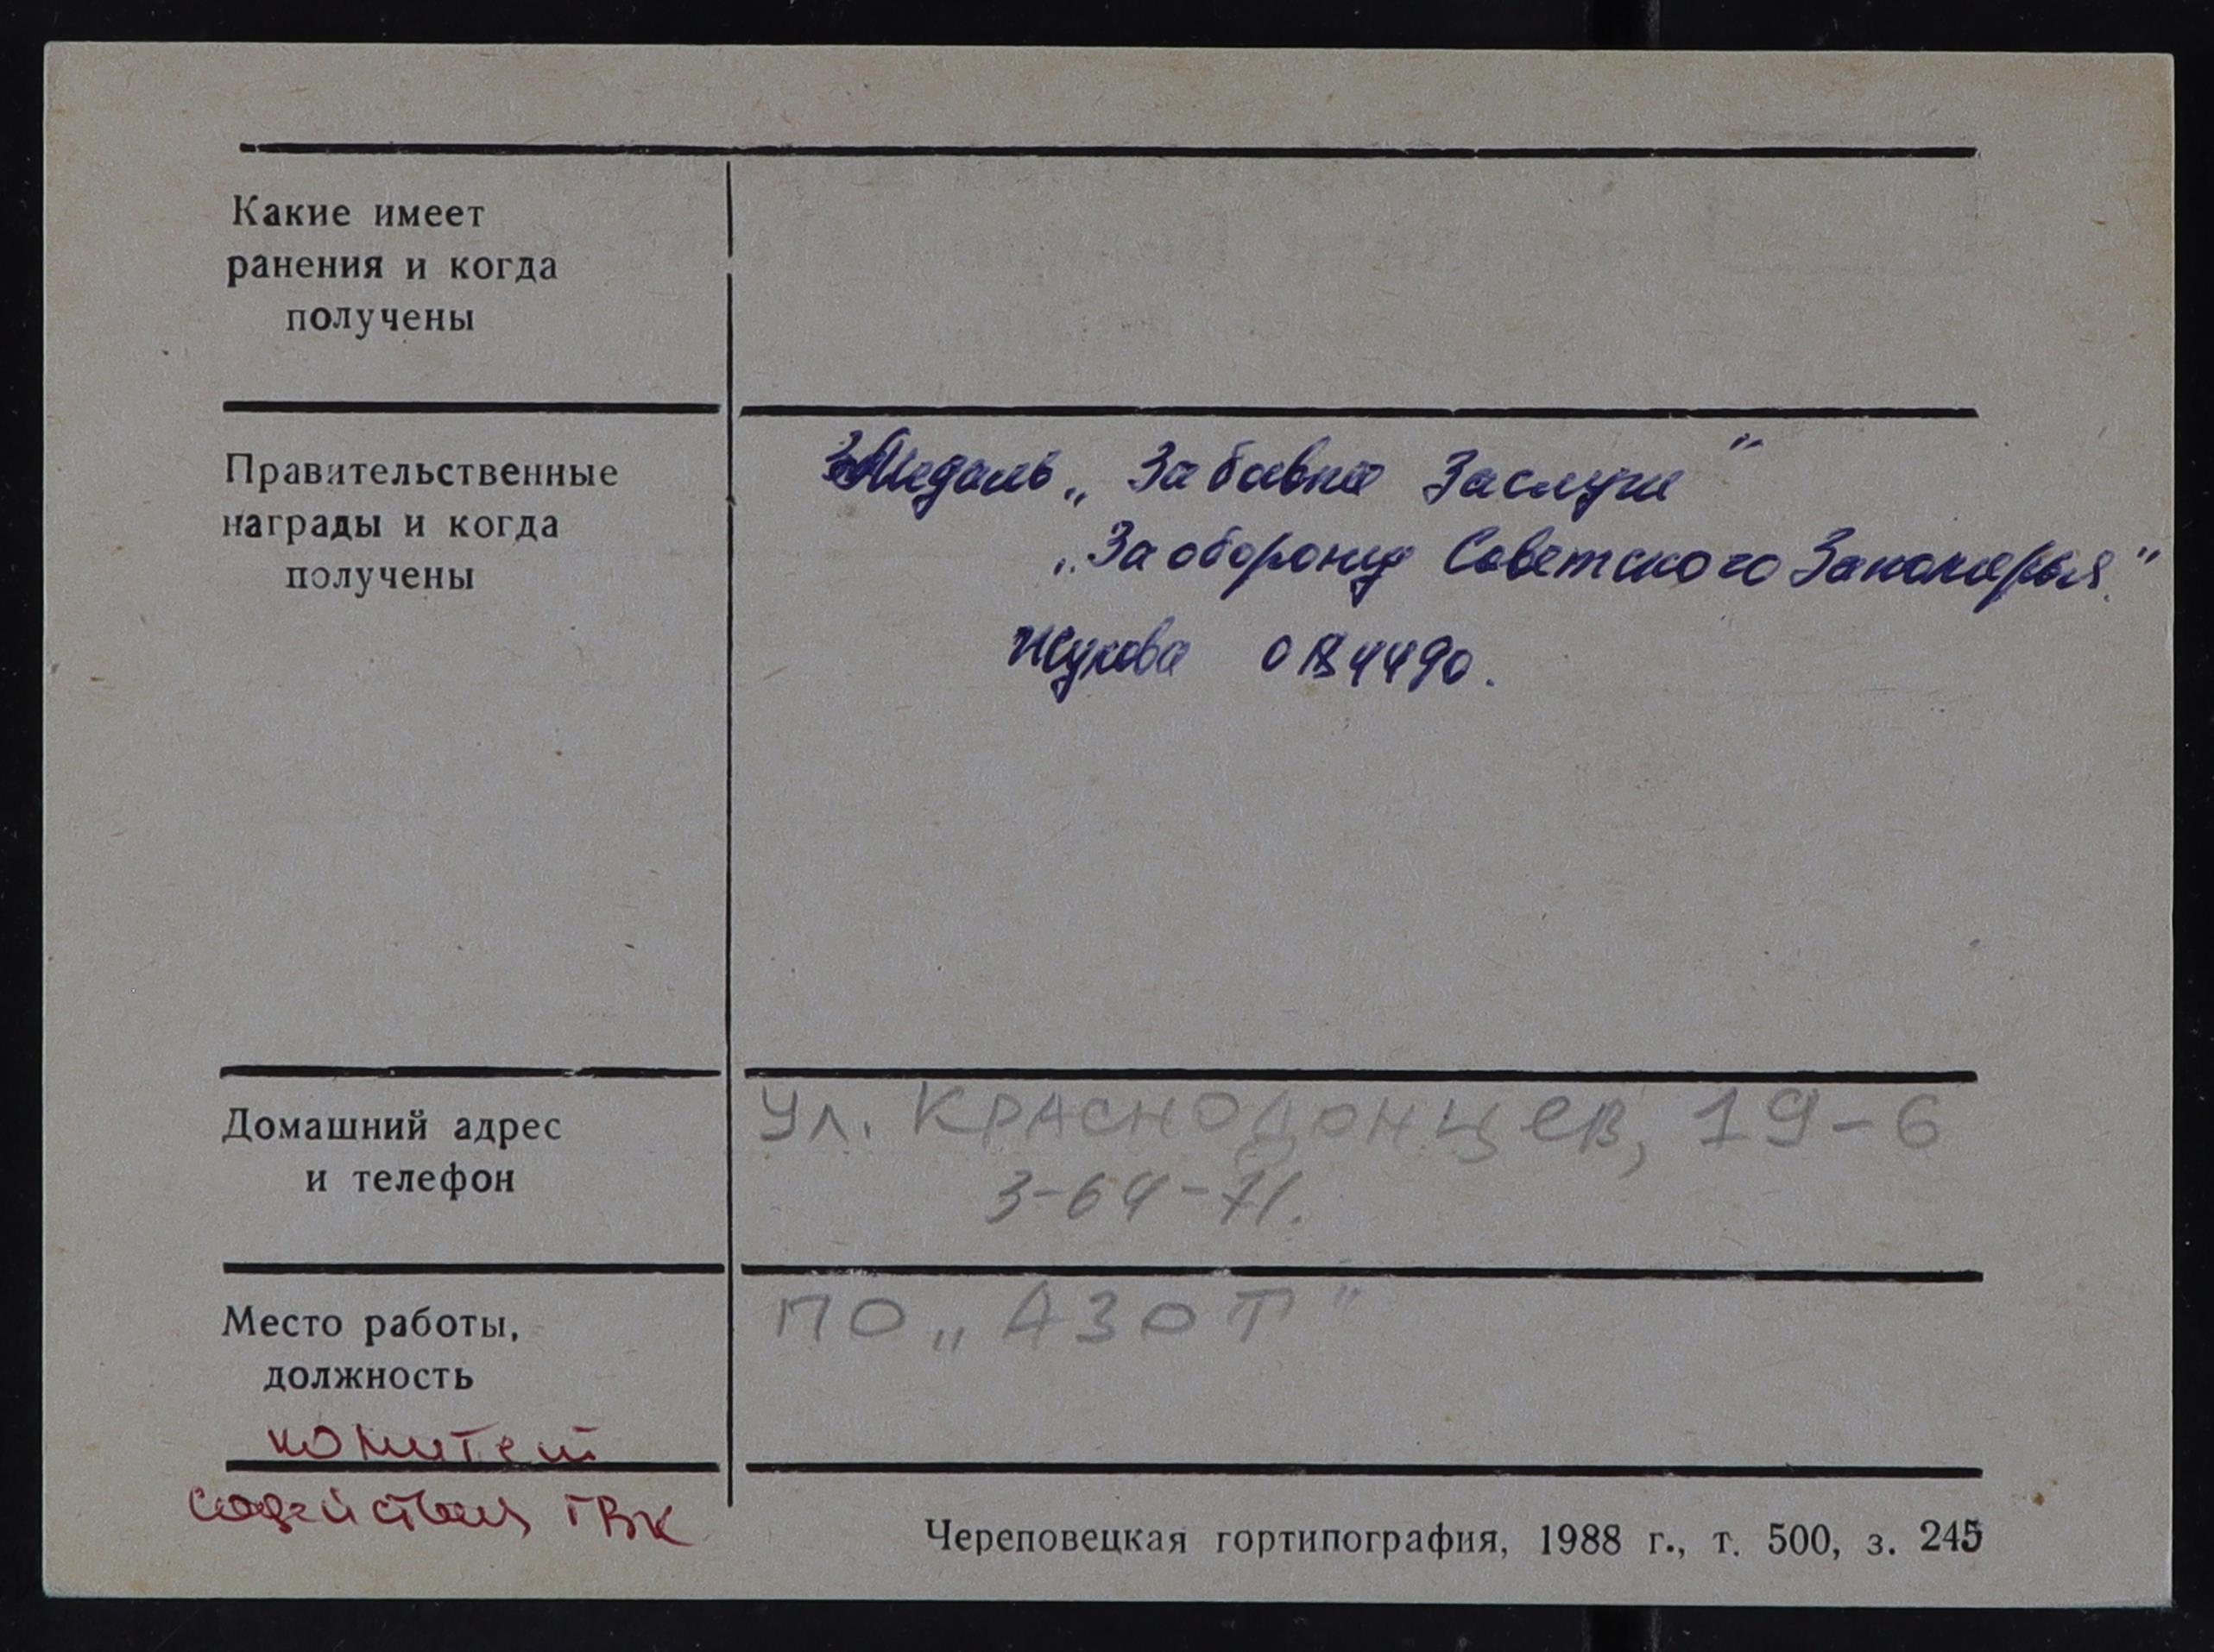 Какие имеет
ранения и когда
получены
Правительственные
награды и когда
получены
Медаль „За боевые Заслуги"
„За оборону Советского Заполярья"
Жукова 0184490.
Домашний адрес
и телефон
ул. КРАСНОДОНЦЕВ, 19-6
3-64-71.
Место работы,
должность
ПО „АЗОТ"
комитет
содействия ГВК
Череповецкая гортипография, 1988 г., т. 500, з. 245